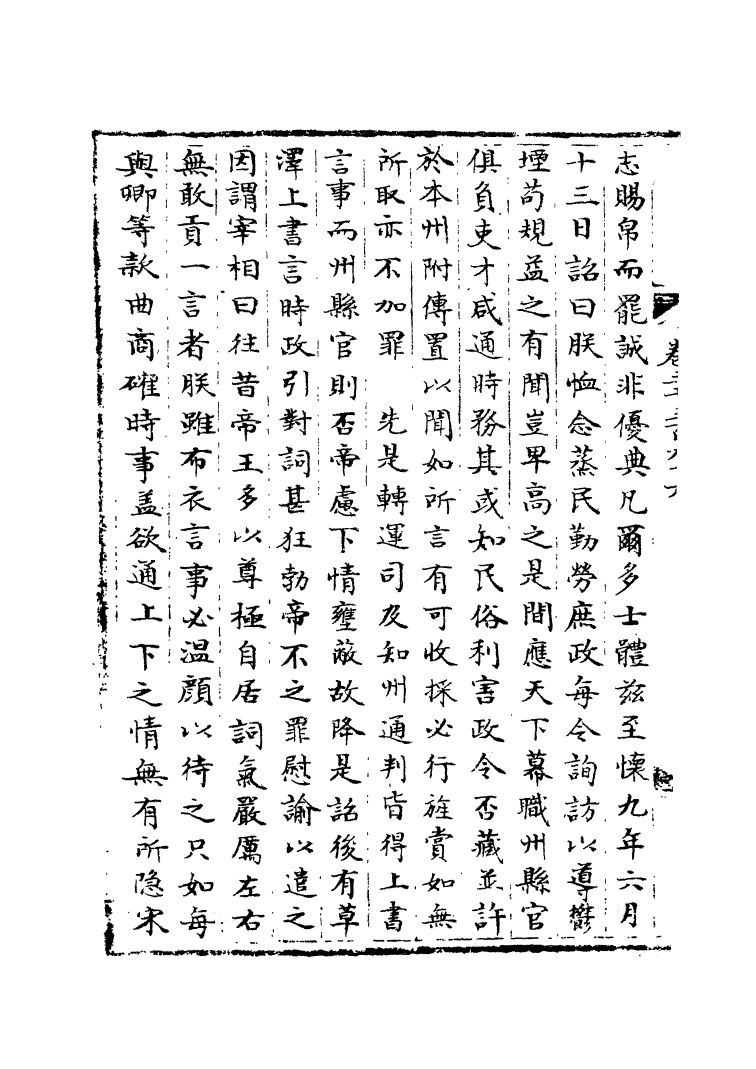 志賜帛而罷誠非優典凡爾多士體茲至懷九年六月
十三日詔曰朕恤念蒸民勤勞庶政每令詢訪以導鬱
堙苟規益之有聞豈早高之是間應天下幕職州縣官
俱負吏才咸通時務其或知民俗利害政令否臧並許
於本州附傳置以聞如所言有可收採必行旌賞如無
所取亦不加罪　先是轉運司及知州通判皆得上書
言事而州縣官則否帝慮下情壅蔽故降是詔後有草
澤上書言時政引對詞甚狂勃帝不之罪慰諭以遣之
因謂宰相曰往昔帝王多以尊極自居詞氣嚴厲左右
無敢貢一言者朕雖布衣言事必溫顏以待之只如每
與卿等款曲商確時事盖欲通上下之情無有所隐宋